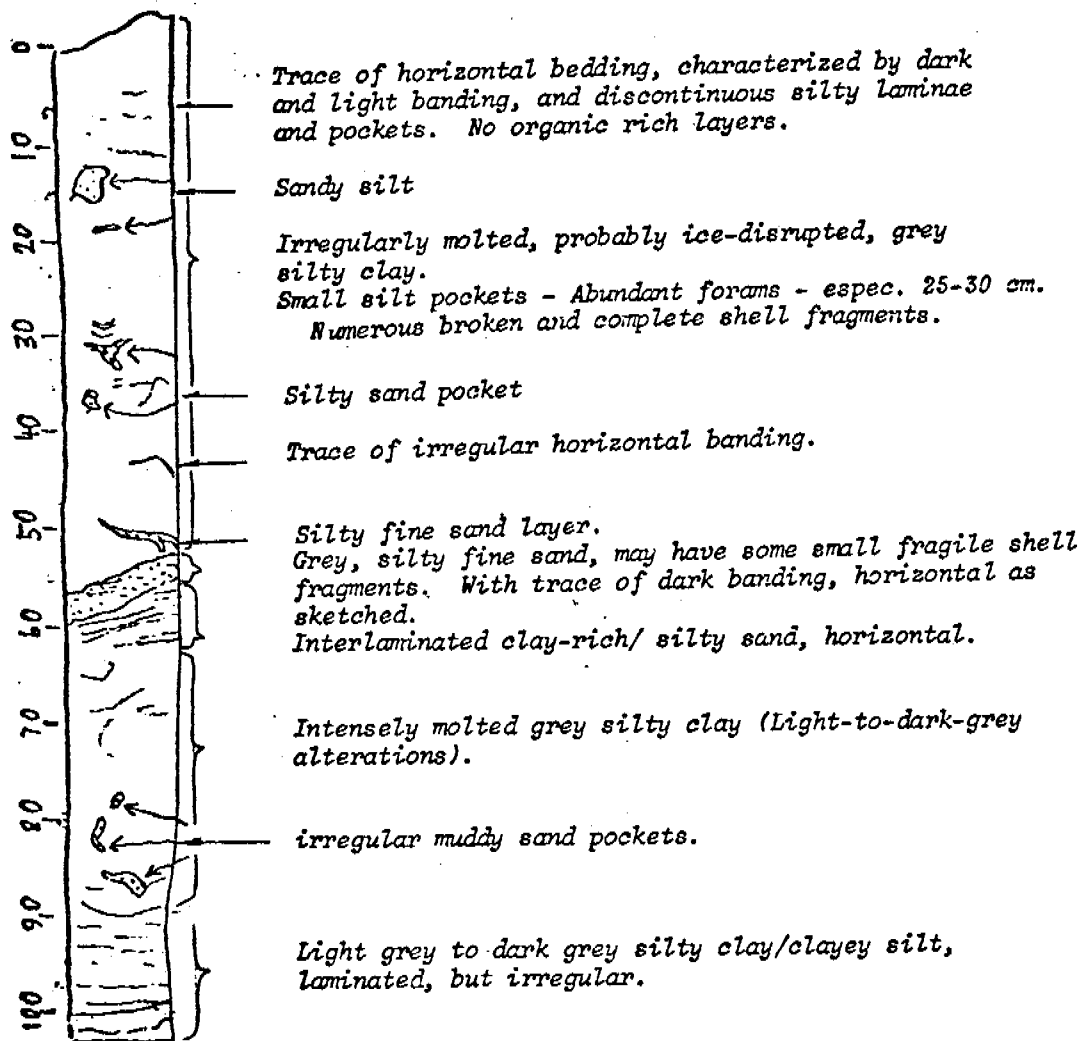 Trace of horizontal bedding, characterized by dark
and light banding, and discontinuous silty laminae
and pockets. No organic rich layers.
Sandy silt
Irregularly molted, probably ice-disrupted, grey
silty clay.
Small silt pockets - Abundant forams - espec. 25-30 cm.
Numerous broken and complete shell fragments.
Silty sand pocket
Trace of irregular horizontal banding.
Silty fine sand layer.
Grey, silty fine sand, may have some small fragile shell
fragments. With trace of dark banding, horizontal as
sketched.
Interlaminated clay-rich/ silty sand, horizontal.
Intensely molted grey silty clay (Light-to-dark-grey
alterations).
irregular muddy sand pockets.
Light grey to dark grey silty clay/clayey silt,
laminated, but irregular.
0
10
20
30
40
50
60
70
80
90
100